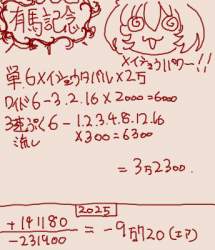 有馬記念
メイショウパワー!!
単6メイショウタバル×2万
ワイド6-3.2.16×2000=6000
3連ぷく6-1.2.3.4.8.12.16
流し ×300=6300
=3万2300.
2025
+141180
-231900
=-9万720(エア)